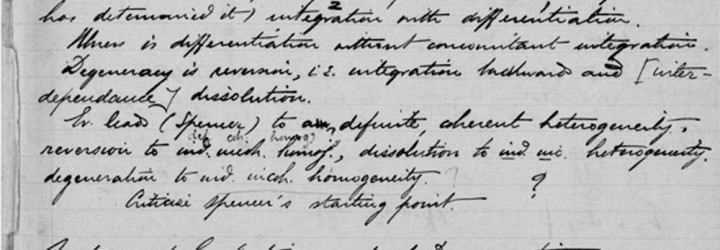 has determined it) integration with differentiation.
2
Illness is differentiation without concomitant integration.
Degeneracy is reversion, i.e. integration backwards and [inter-
dependance] dissolution.
Ev. leads (Spencer) to a definite, coherent heterogeneity,
def. coh. homog?
reversion to ind. incoh. homog., dissolution to ind. inc. heterogeneity.
degeneration to ind. incoh. homogeneity. ?
?
Criticise Spencer's starting point.